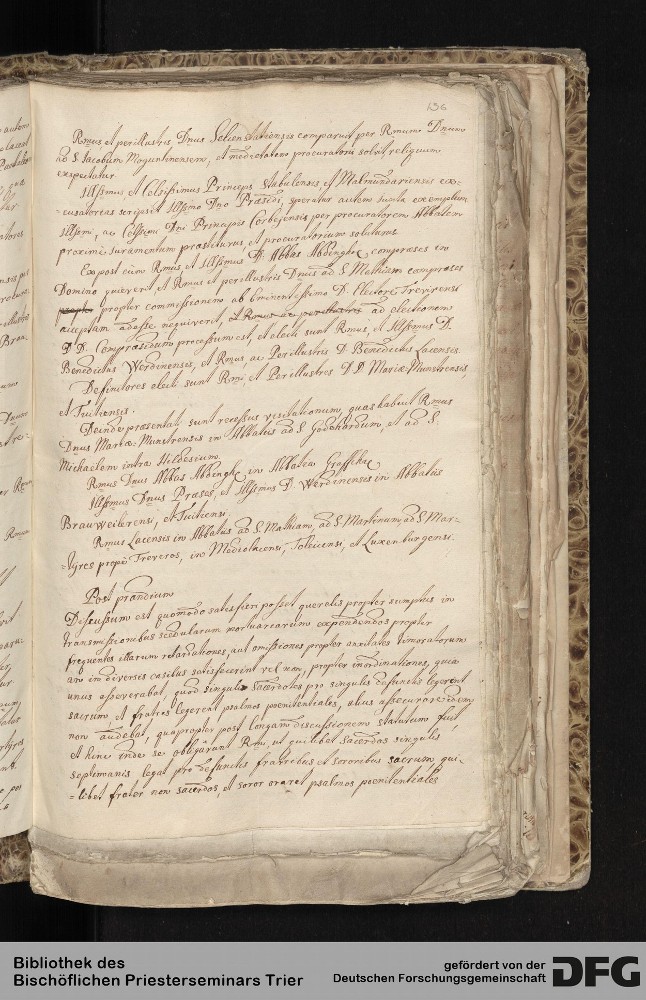 136
Rmus et perillustris Dnus Seligenstatiensis comparuit per Rmum Dnum
ad S. Jacobum Moguntinensem, et medietatem procuratorii solvit reliquum
expectatur.
Illssmus et Celsissimus Princeps Stabulensis et Malmundariensis ex-
-cusatorias scripsit Illssimo Dno Præsidi, speratur autem juxta exemplum
Illssmi, ac Celssimi Dni Principis Corbejensis per procuratorem Abbatem
proxime juramentum præstiturus et procuratorium soluturus.
Ex post cum Rmus et Illssmus D. Abbas Abdinghof compræses in
Domino quieverit et Rmus et perillustris Dnus ad S. Mathiam compræses
propter propter commissionem ab Eminentissimo D. Electore Trevirensi
acceptam adesse nequiverit, et Rmus ac perillustris ad electionem
D D. Compræsidum processum est, et electi sunt Rmus, et Illssmus D.
Benedictus Werdinensis, et Rmus, ac Perillustris D. Benedictus Lacensis.
Definitores electi sunt Rmi et Perillustres D D Mariæ-Munstrensis,
et Tuitiensis.
Deinde præsentati sunt recessus visitationum, quas habuit Rmus
Dnus Mariæ-Munstrensis in Abbatiis ad S. Godehardum, et ad S.
Michaelem intra Hildesium.
Rmus Dnus Abbas Abdinghof in Abbatia Graffschaf
Illssmus Dnus Præses, et Illssmus D. Werdinensis in Abbatiis
Brauweilerensi, et Tuitiensi.
Rmus Lacensis in Abbatiis ad S. Mathiam, ad S. Martinum, ad S. Mar-
-tyres prope Treviros, in Mediolacensi, Toleiensi, et Luxenburgensi.
Post prandium
Discussum est quomodo satisfieri posset querelis propter sumptus in
transmissionibus scedularum mortuariarum expendendos propter
frequentes illarum retardationes, aut omissiones propter anxietates timoratorum
an in diversis casibus satisfecerint vel non, propter inordinationes, quia
unus asseverabat, quod singuli sacerdotes pro singulis defunctis legerent
sacrum, et fratres legerent psalmos pœnitentiales, alius assecurare idem
non audebat, quapropter post longam discussionem statutum fuit,
et hinc inde se obligarunt Rmi, ut quilibet sacerdos singulis
septimanis legat pro defunctis fratribus et sororibus sacrum qui-
-libet frater non sacerdos, et soror oraret psalmos pœnitentiales
Bibliothek des
Bischöflichen Priesterseminars Trier
gefördert von der
Deutschen Forschungsgemeinschaft
DFG